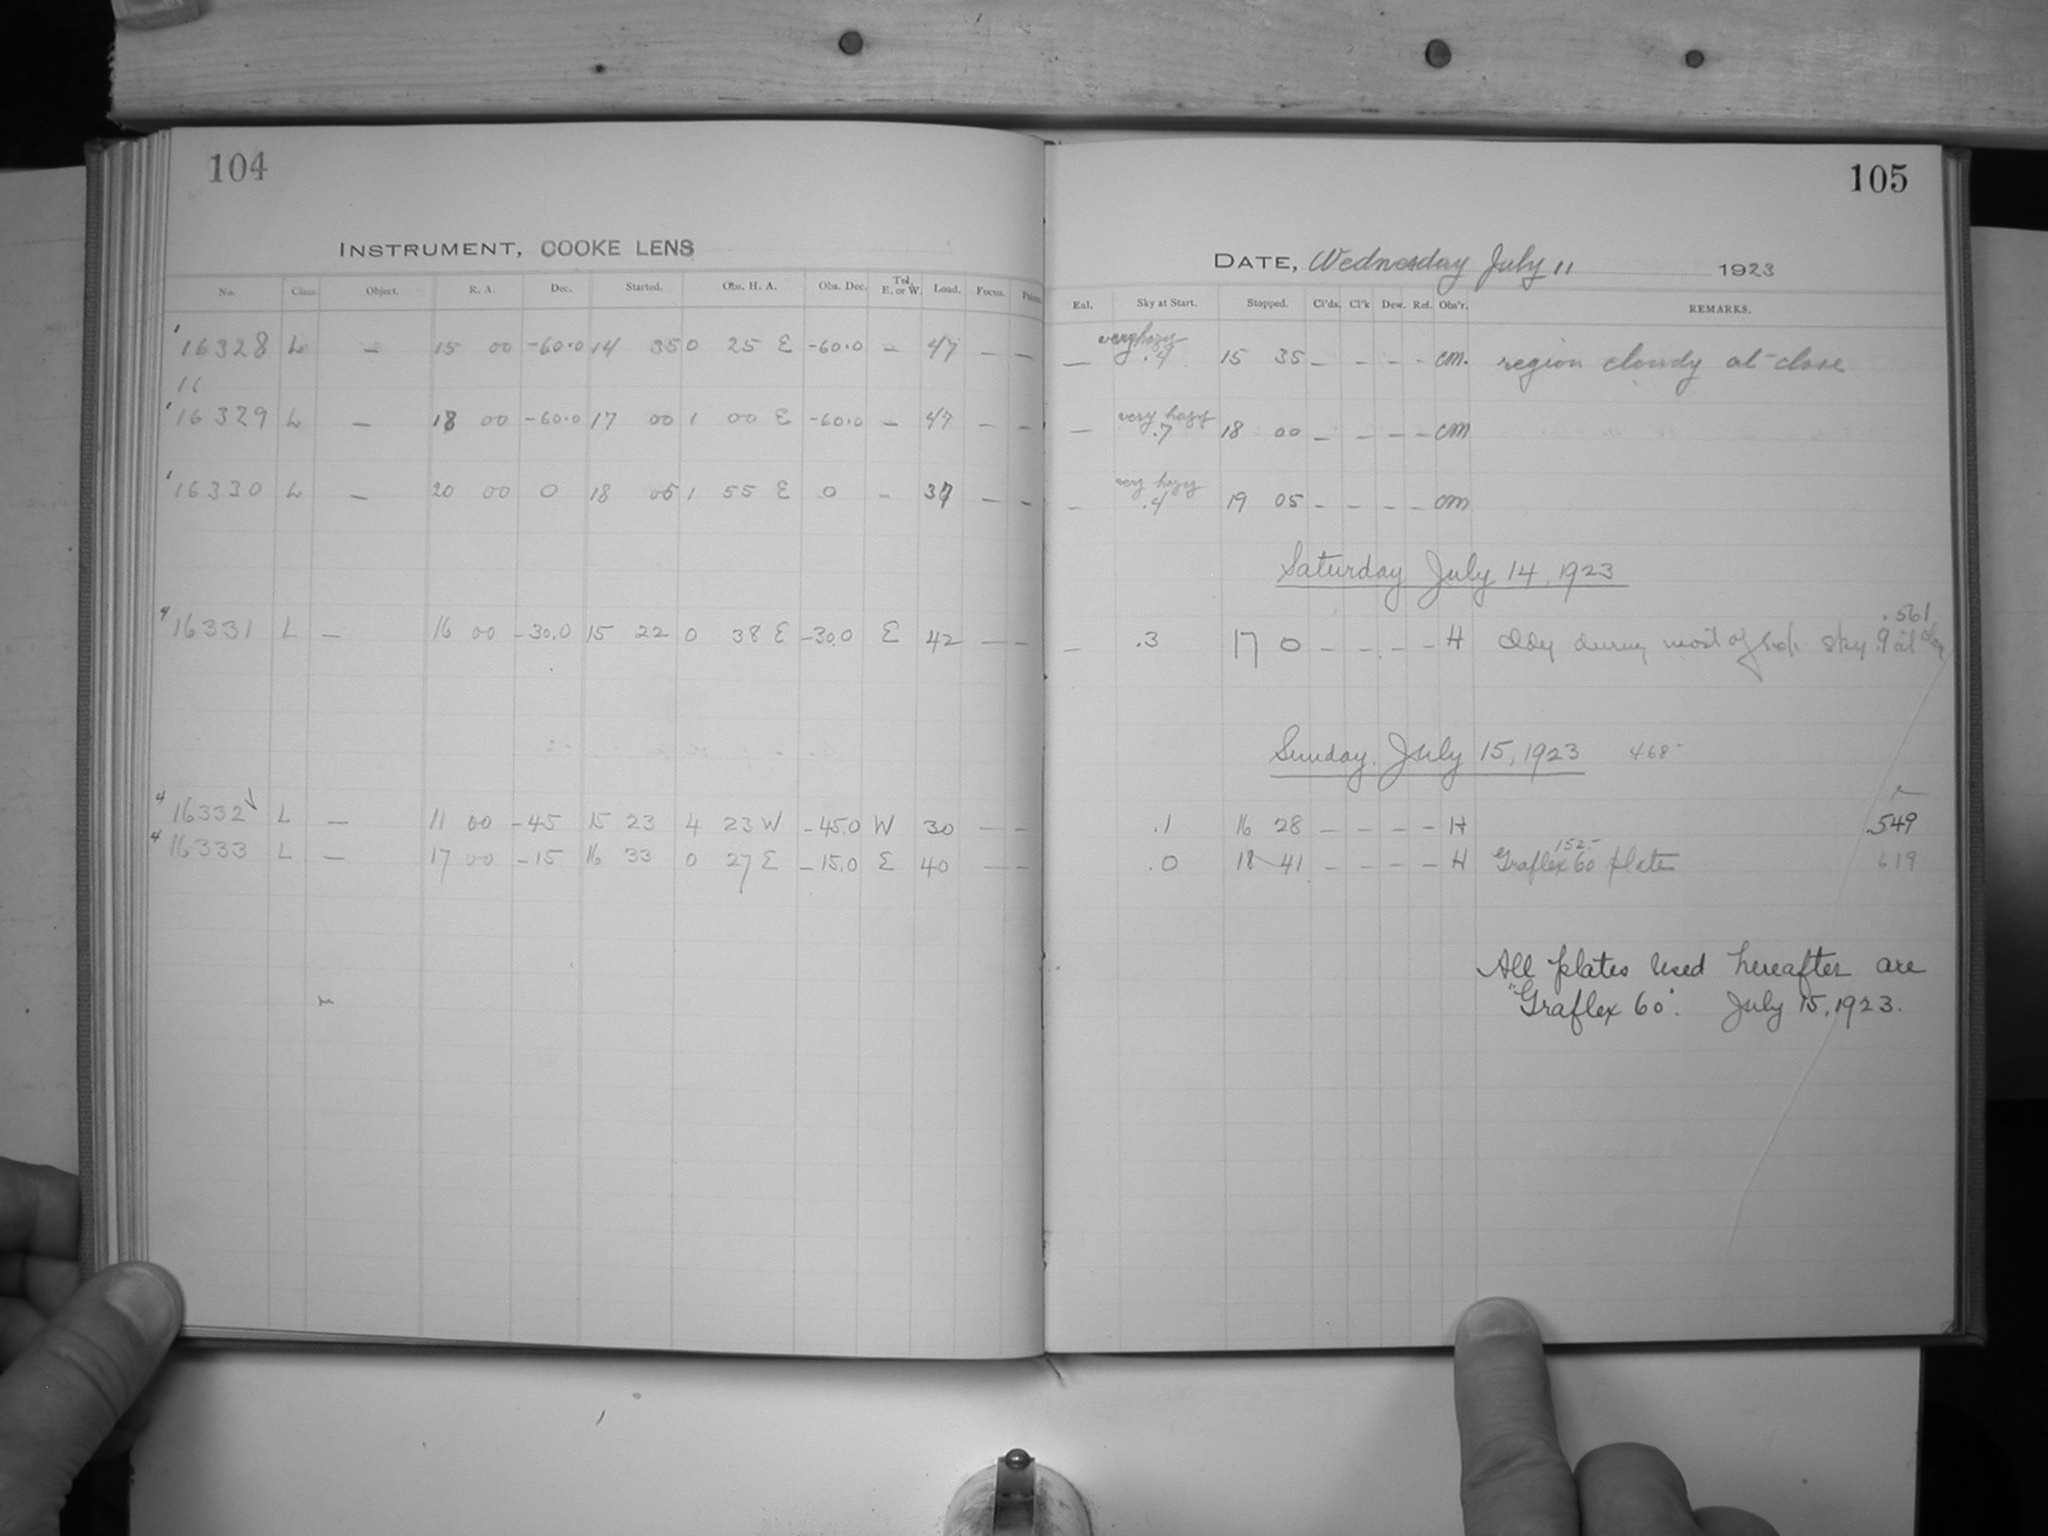 104
INSTRUMENT, COOKE LENS
No. Class Object. R. A. Dec. Started. Obs. H. A. Obs. Dec. Tel. E. or W. Load. Focus.
16328 L — 15 00 -60.0 14 35 0 25 E -60.0 — 47 — —
16329 L — 18 00 -60.0 17 00 1 00 E -60.0 — 47 — —
16330 L — 20 00 0 18 05 1 55 E 0 — 37 — —
4 16331 L — 16 00 -30.0 15 22 0 38 E -30.0 E 42 — —
4 16332 L — 11 00 -45 15 23 4 23 W -45.0 W 30 — —
4 16333 L — 17 00 -15 16 33 0 27 E -15.0 E 40 — —
105
DATE, Wednesday July 11 1923
Enl. Sky at Start. Stopped. Cl'ds. Cl'k Dew. Ref. Obs'r. REMARKS.
— very hazy .4 15 35 — — — — CM. region cloudy at close
— very hazy .7 18 00 — — — — CM
— very hazy .4 19 05 — — — — CM
Saturday July 14, 1923
.561
— .3 17 0 — — — — H during most of sky .9 at
Sunday. July 15, 1923 468-
.1 16 28 — — — — H .549
152-
.0 18 41 — — — — H Graflex 60 plate 619
All plates used hereafter are
"Graflex 60". July 15, 1923.